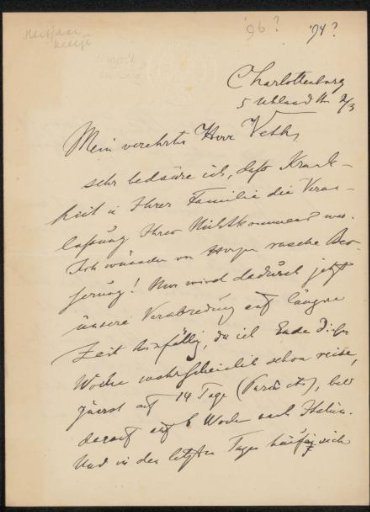 '96? '94?
Charlottenburg
5 Uhland Str 2/3
Mein verehrter Herr Veth,
sehr bedaure ich, dass Krank-
heit in Ihrer Familie die Veran-
lassung Ihres Nichtkommens war.
Ich wünsche von Herzen rasche Bes-
serung! Nun wird dadurch jetzt
unsere Verabredung auf längere
Zeit hinfällig, da ich Ende dieser
Woche wahrscheinlich schon reise,
zuerst auf 14 Tage, bald
darauf auf 6 Wochen nach Italien.
Und in den letzten Tagen häufen sich